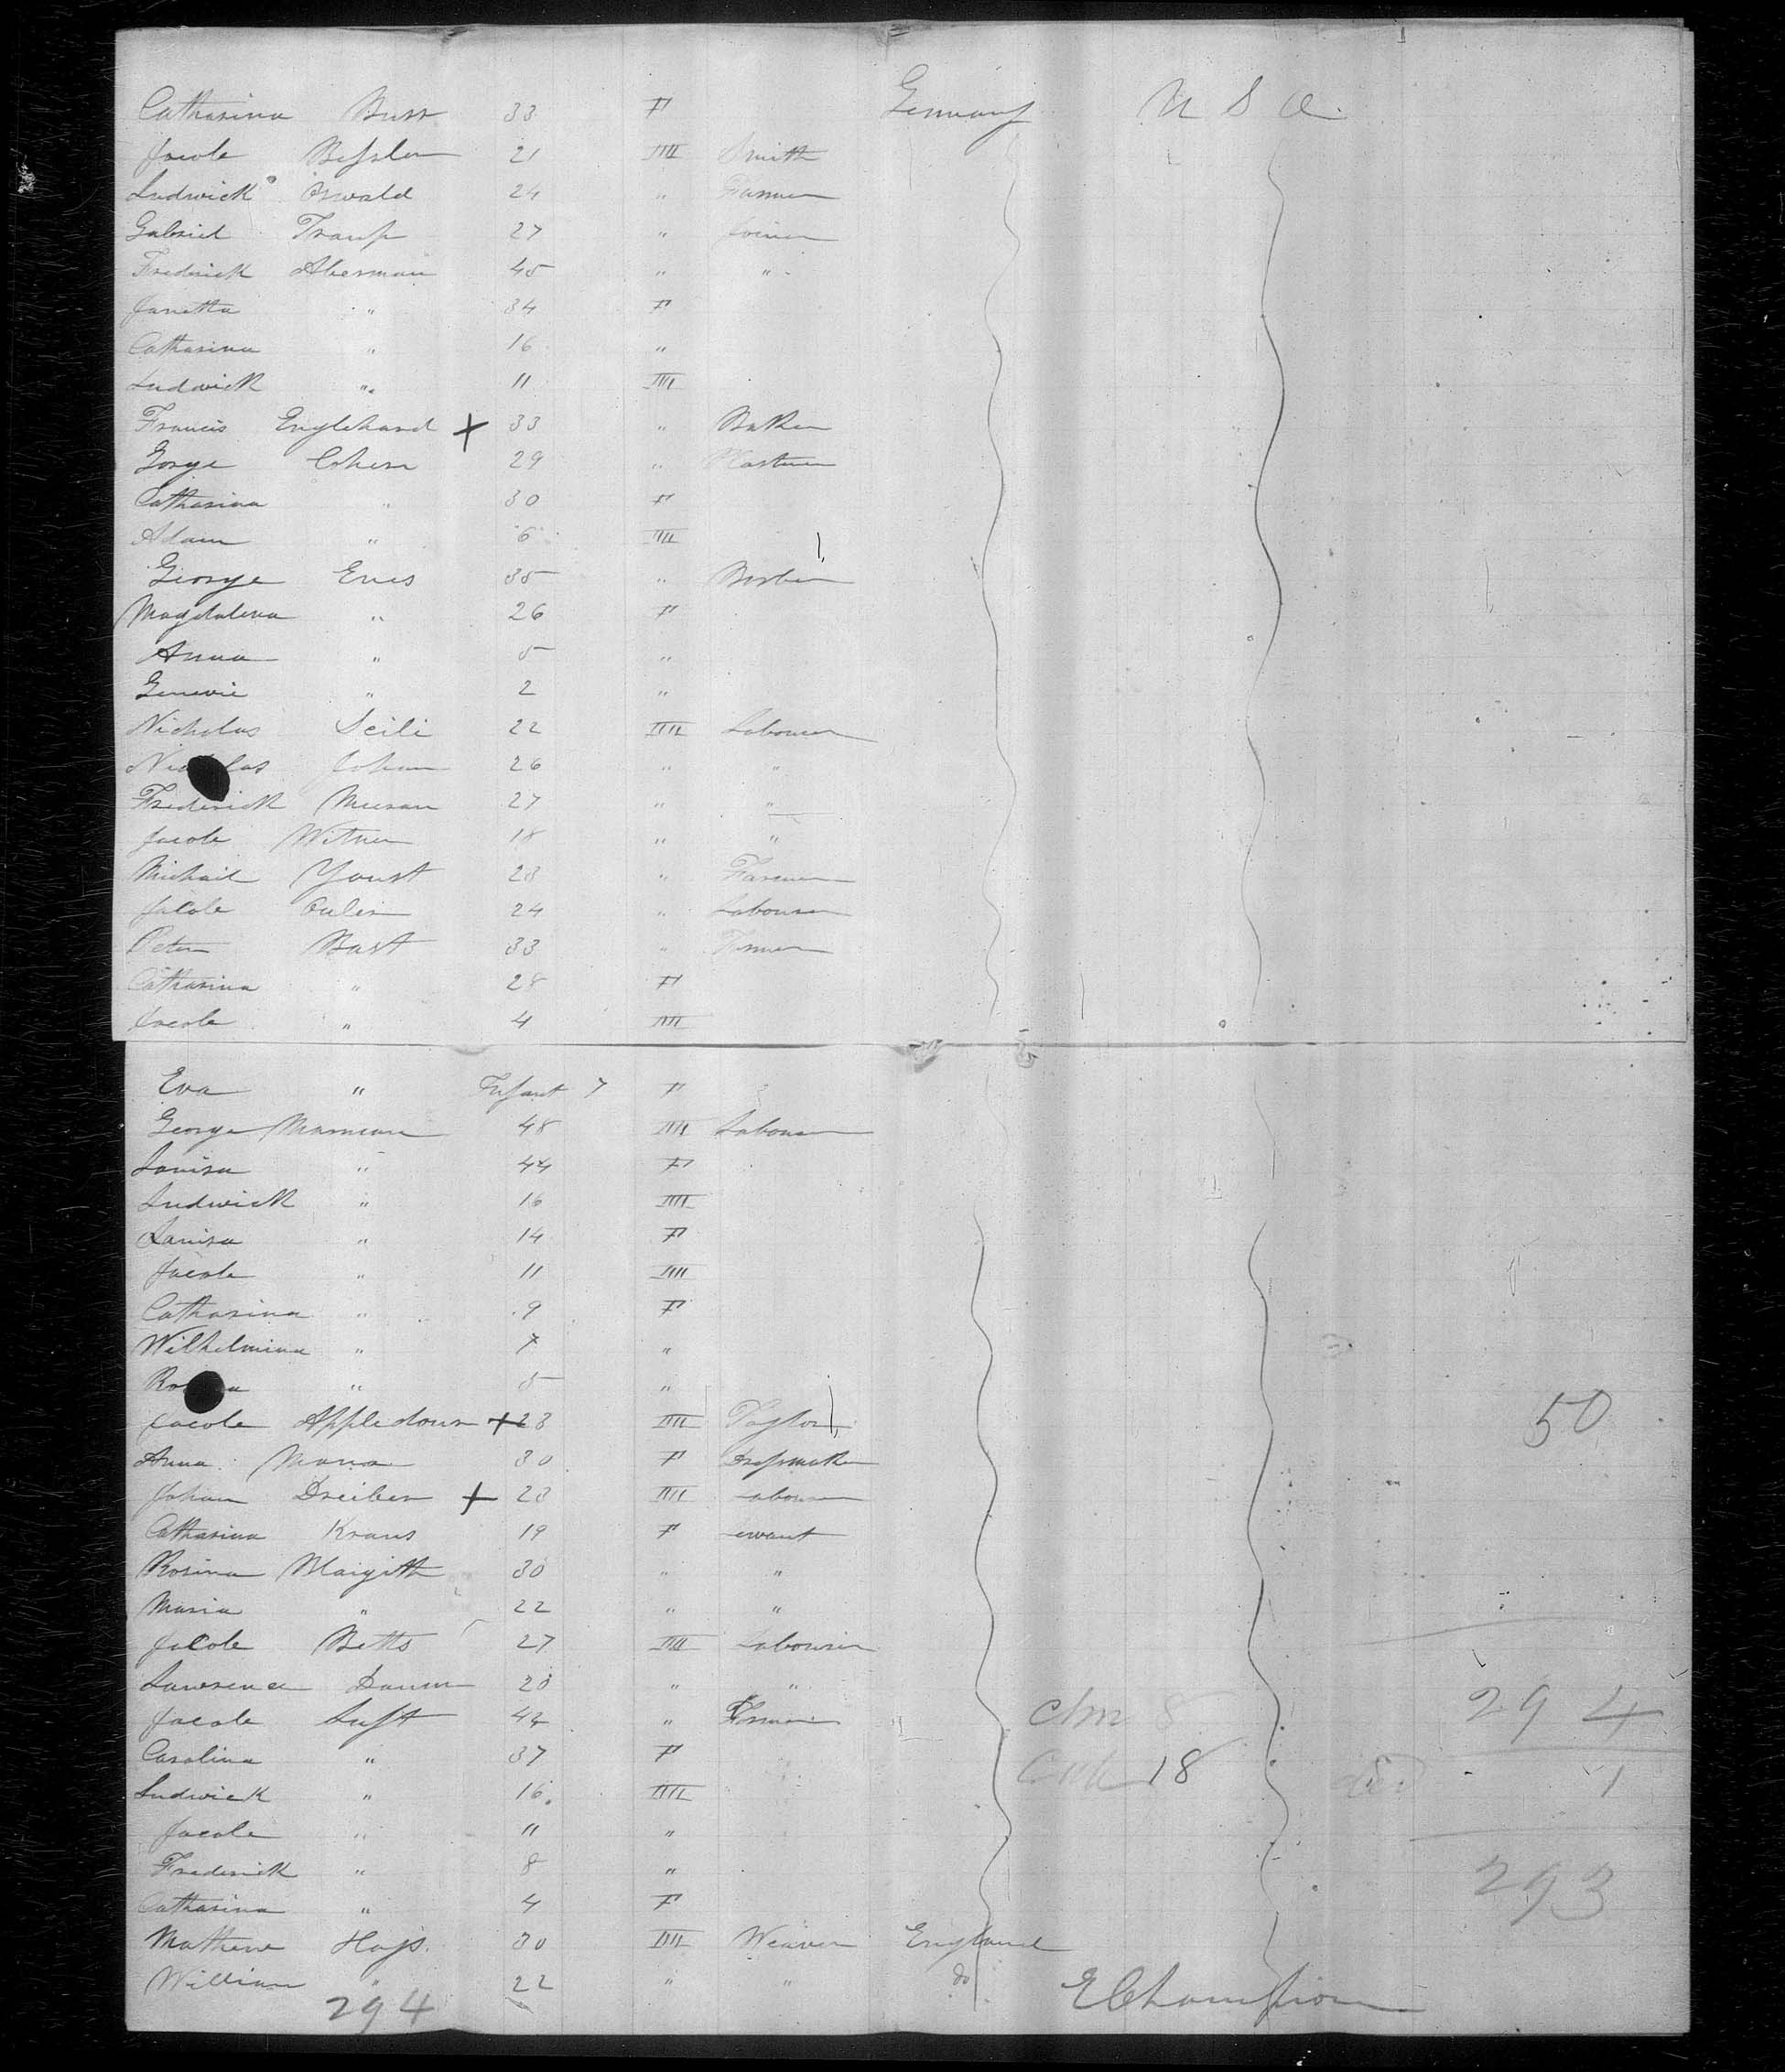 Catharina Burr 33 F Germany U S A
Jacob Bessler 21 M Smith
Ludwick Oswald 24 " Farmer
Gabriel 27 " Joiner
Frederick Aberman 45 " "
Janetta " 34 F
Catharina " 16 "
Ludwick " 11 M
Francis Englehard + 33 " Baker
Gorge Cohern 29 "
Catharina " 30 F
Adam " 6 M
George Enes 35 "
Magdalena " 26 F
Anna " 5 "
Genevie " 2 "
Nicholas Seili 22 M Labourer
Nicholas Johan 26 " "
Frederick 27 " "
Jacob Witner 18 " "
Michail Youst 28 " Farmer
Jacob 24 " Labourer
Peter Bast 33 "
Catharina " 28 F
Jacob " 4 M
Eva " Infant F
George 48 M Labourer
Louisa " 44 F
Ludwick " 16 M
Louisa " 14 F
Jacob " 11 M
Catharina " 9 F
Wilhelmina " 7 "
" 5 "
Jacob Appledourn + 28 M Taylor
50
Anna Maria 30 F Dressmaker
Johan Dreiber + 28 M Labourer
Catharina Kraus 19 F ervant
Rosina 30 " "
Maria " 22 " "
Jacob Betts 27 M Labourer
Lawrence Damm 28 " "
Jacob Luft 42 "
294
Carolina " 37 F
18
1
Ludwick " 16 M
Jacob " 11 "
Frederick " 8 "
293
Catharina " 4 F
Mathew Hays 30 M Weaver England
William " 22 " " do
E Champion
294